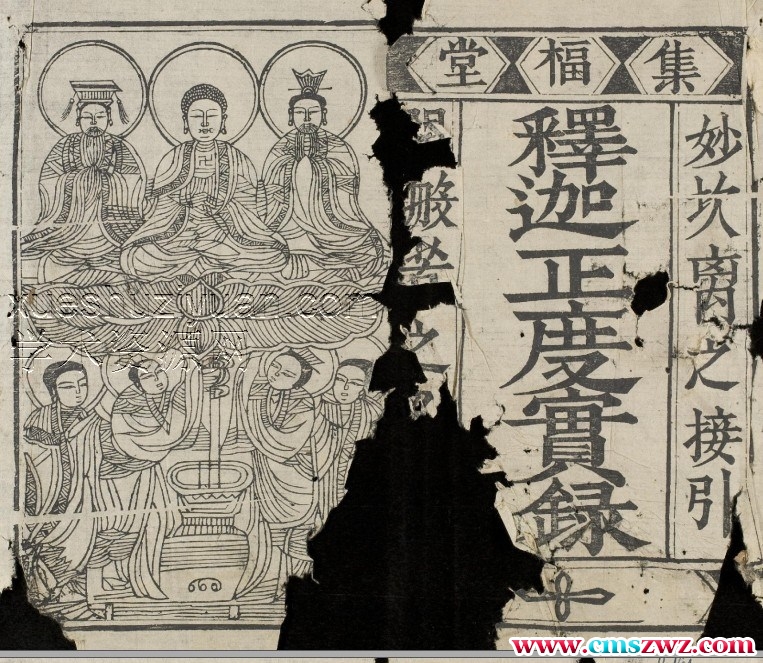 集福堂
妙坎离之接引
釋迦正度實録
般若之
xueshuziyuan.com
学术资源网
www.cmszwz.com